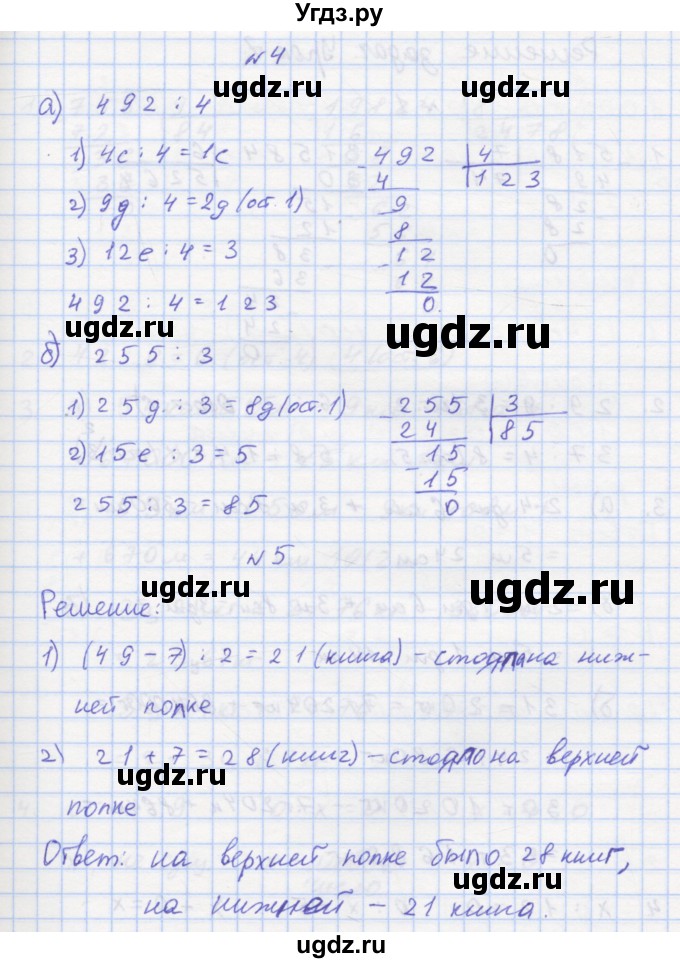 Угдз.ру
№4
ugdz.ru ugdz.ru
а) 492 : 4
1) 4с : 4 = 1с
2) 9д : 4 = 2д (ост. 1)
3) 12е : 4 = 3
492 : 4 = 123
492 | 4
4 | 123
9
8
12
12
0
ugdz.ru ugdz.ru
б) 255 : 3
1) 25д : 3 = 8д (ост. 1)
2) 15е : 3 = 5
255 : 3 = 85
255 | 3
24 | 85
15
15
0
ugdz.ru ugdz.ru
№5
ugdz.ru ugdz.ru
Решение:
1) (49 - 7) : 2 = 21 (книга) - стояла на ниж-
ugdz.ru
ней полке
ugdz.ru ugdz.ru
2) 21 + 7 = 28 (книг) - стояло на верхней
полке
ugdz.ru ugdz.ru
Ответ: на верхней полке было 28 книг,
ugdz.ru ugdz.ru
на нижней - 21 книга.
ugdz.ru